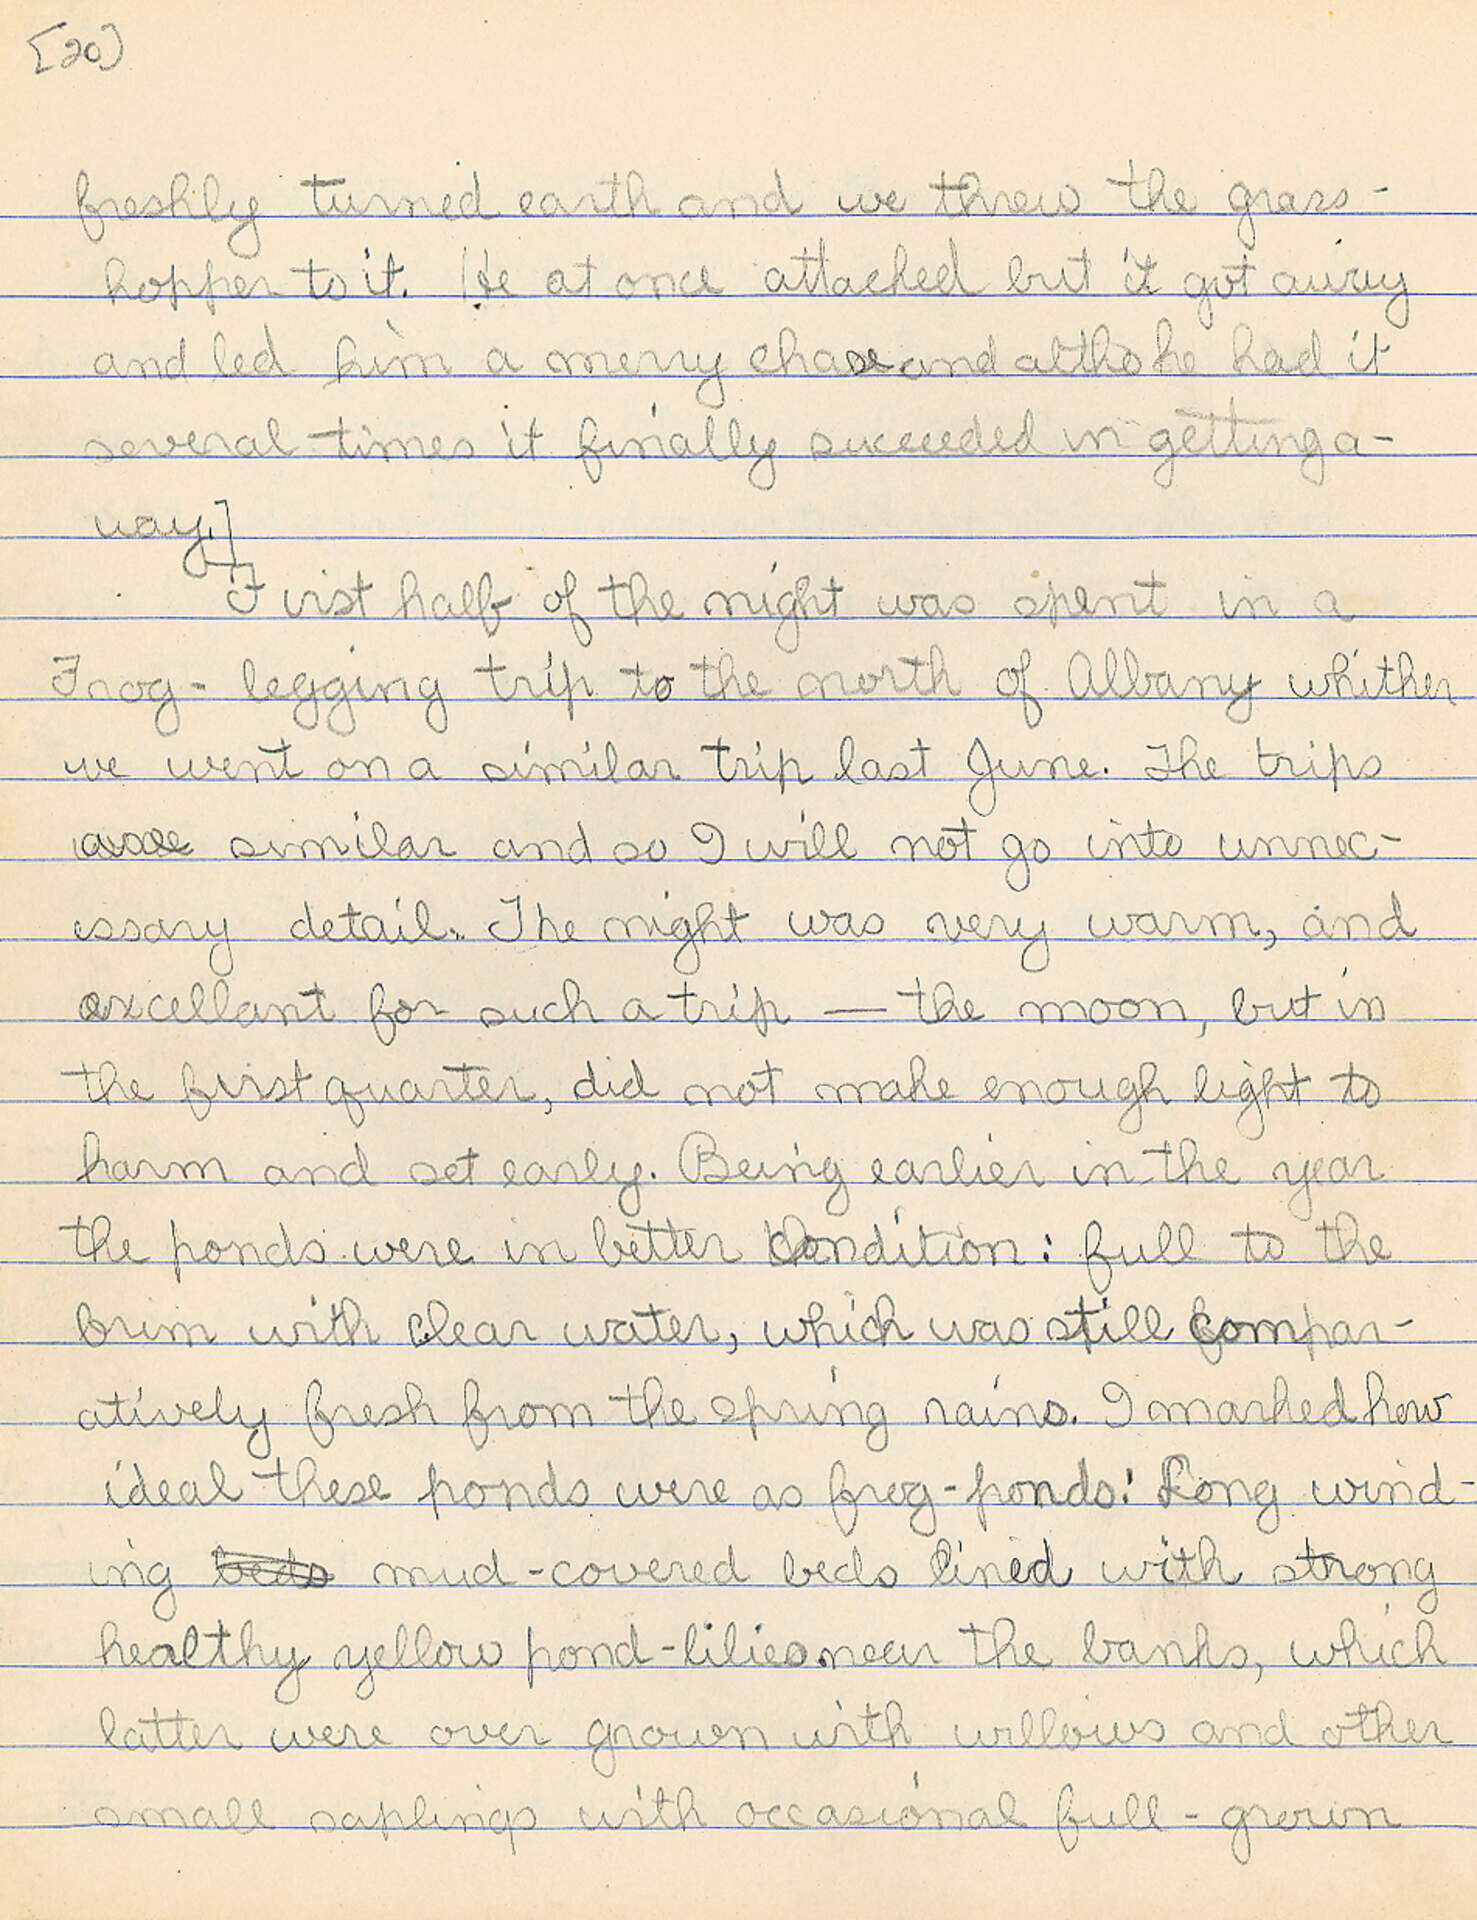 [20]
freshly turned earth and we threw the grass-
hopper to it. He at once attached but it got away
and led him a merry chase and altho he had it
several times it finally succeeded in getting a-
way.]
First half of the night was spent in a
Frog-legging trip to the north of Albany whither
we went on a similar trip last June. The trips
similar and so I will not go into unnec-
essary detail. The night was very warm, and
excellant for such a trip — the moon, but in
the first quarter, did not make enough light to
harm and set early. Being earlier in the year
the ponds were in better condition: full to the
brim with clear water, which was still compar-
atively fresh from the spring rains. I marked how
ideal these ponds were as frog-ponds: Long wind-
ing beds mud-covered beds lined with strong
healthy yellow pond-lilies near the banks, which
latter were over grown with willows and other
small saplings with occasional full-grown